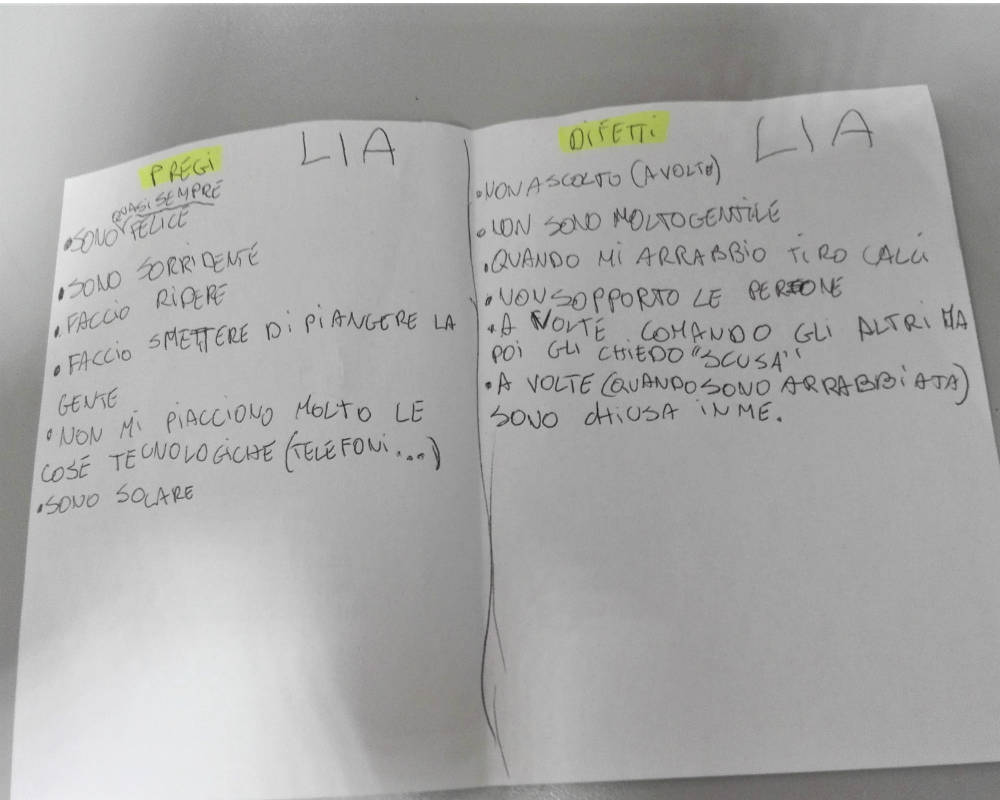 LIA
PREGI
QUASI SEMPRE
•SONO FELICE
•SONO SORRIDENTE
•FACCIO RIDERE
•FACCIO SMETTERE DI PIANGERE LA
GENTE
•NON MI PIACCIONO MOLTO LE
COSE TECNOLOGICHE (TELEFONI...)
•SONO SOLARE
LIA
DIFETTI
•NON ASCOLTO (A VOLTE)
•NON SONO MOLTO GENTILE
•QUANDO MI ARRABBIO TIRO CALCI
•NON SOPPORTO LE PERSONE
•A VOLTE COMANDO GLI ALTRI MA
POI GLI CHIEDO "SCUSA"
•A VOLTE (QUANDO SONO ARRABBIATA)
SONO CHIUSA IN ME.